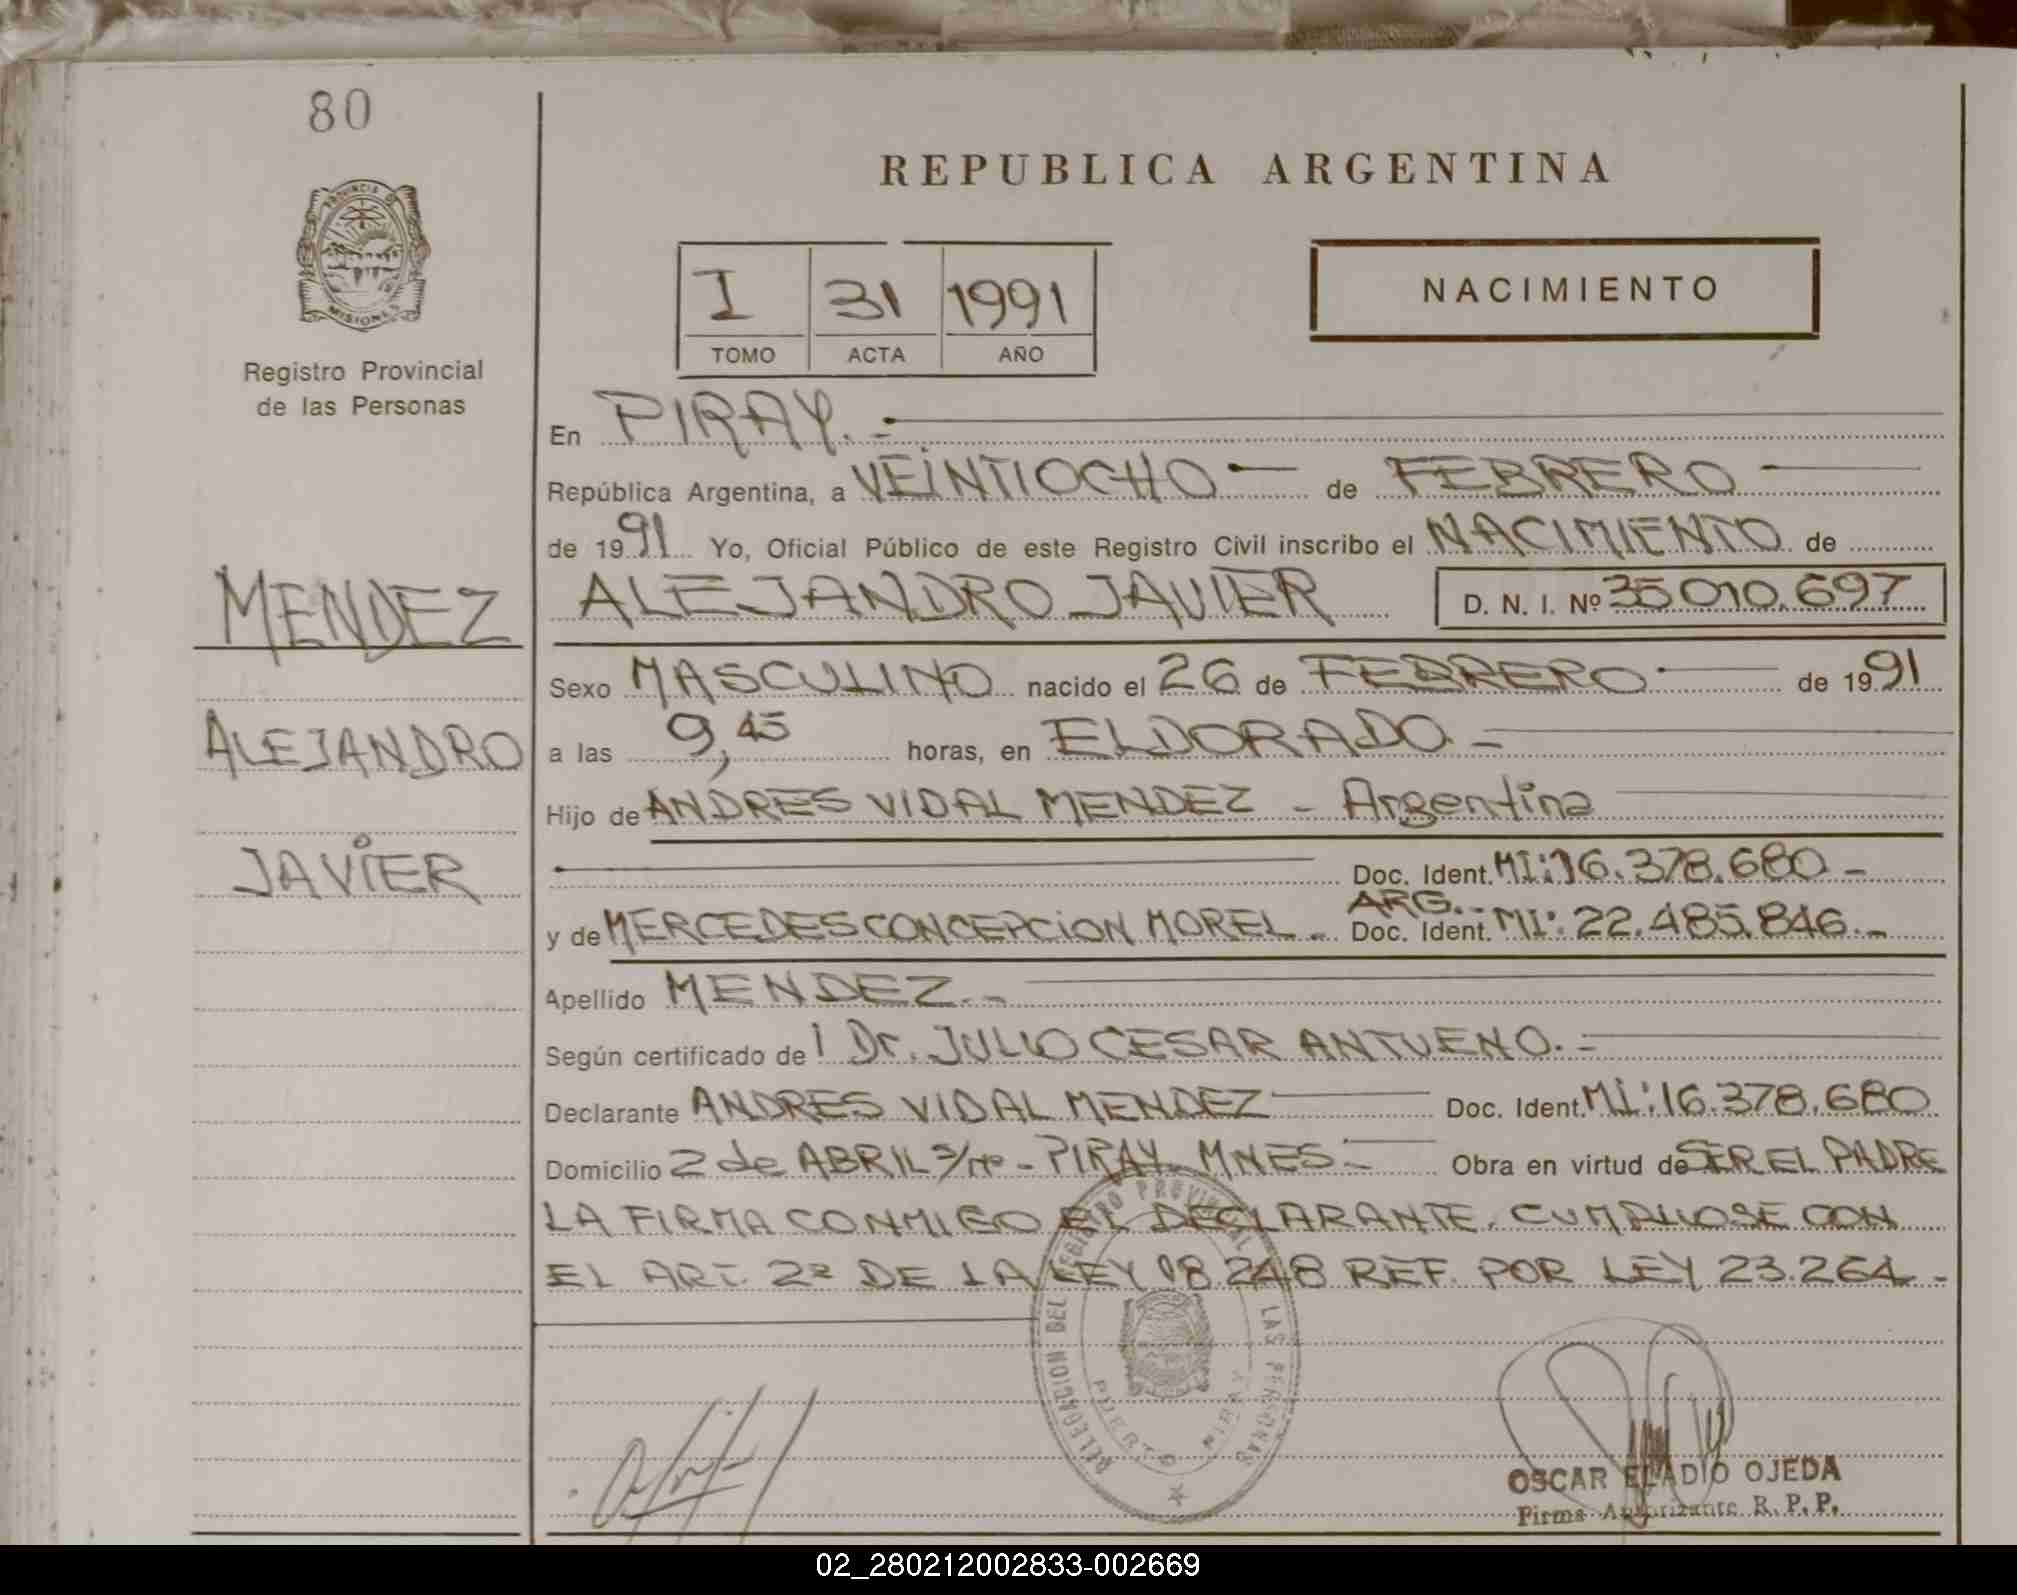 80
PROVINCIA DE
MISIONES
Registro Provincial
de las Personas
MENDEZ
ALEJANDRO
JAVIER
REPUBLICA ARGENTINA
I 31 1991
TOMO ACTA AÑO
NACIMIENTO
En PIRAY.-
República Argentina, a VEINTIOCHO — de FEBRERO —
de 1991 Yo, Oficial Público de este Registro Civil inscribo el NACIMIENTO de
ALEJANDRO JAVIER D. N. I. Nº 35010.697
Sexo MASCULINO nacido el 26 de FEBRERO — de 1991
a las 9,45 horas, en ELDORADO.-
Hijo de ANDRES VIDAL MENDEZ - Argentina
Doc. Ident. MI: 16.378.680-
ARG.-
y de MERCEDES CONCEPCION MOREL- Doc. Ident. MI: 22.485.846.-
Apellido MENDEZ.-
Según certificado de l Dr. JULIO CESAR ANTUENO.-
Declarante ANDRES VIDAL MENDEZ — Doc. Ident. MI: 16.378.680
Domicilio 2 de ABRIL s/nº - PIRAY- MNES.- Obra en virtud de SER EL PADRE
LA FIRMA CONMIGO EL DECLARANTE. CUMPLIOSE CON
EL ART. 2º DE LA LEY 18.248 REF. POR LEY 23.264-
DELEGACION DEL REGISTRO PROVINCIAL LAS PERSONAS
PUERTO PIRAY
OSCAR ELADIO OJEDA
Firma Autorizante R. P. P.
02_280212002833-002669